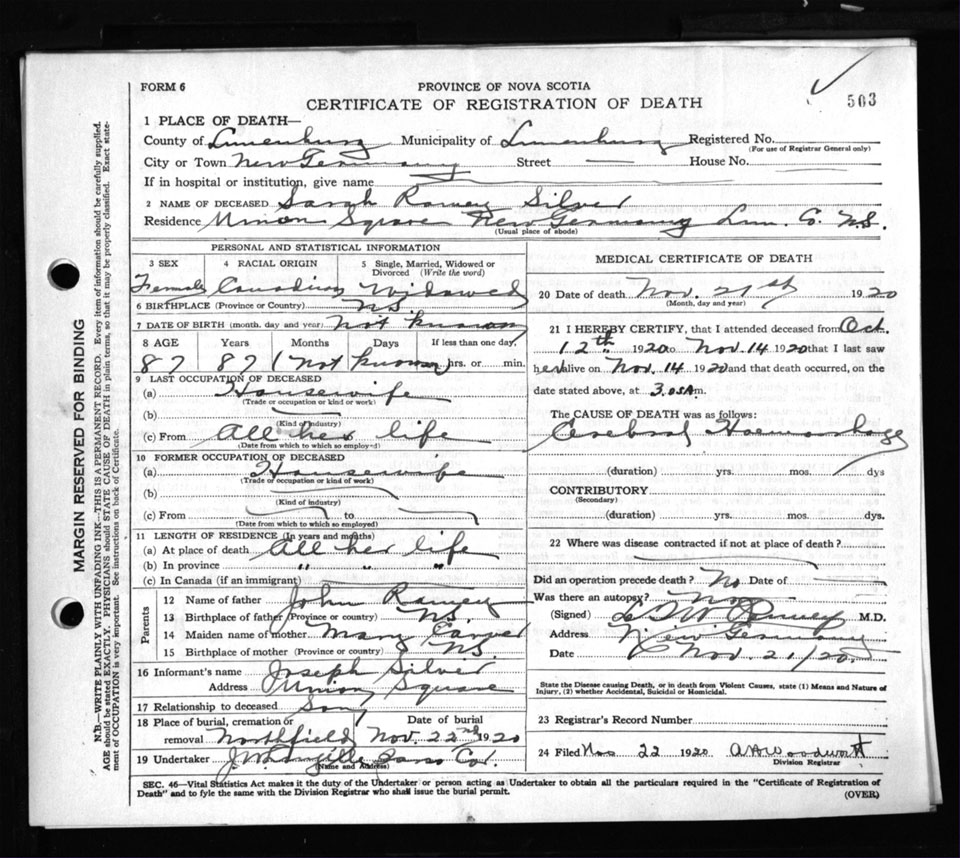 FORM 6
PROVINCE OF NOVA SCOTIA
CERTIFICATE OF REGISTRATION OF DEATH
503
1 PLACE OF DEATH—
County of Lunenburg Municipality of Lunenburg Registered No.
(For use of Registrar General only)
City or Town New Germany Street — House No.
If in hospital or institution, give name
2 NAME OF DECEASED Sarah Ramey Silver
Residence Union Square New Germany Lun. Co. N.S.
(Usual place of abode)
PERSONAL AND STATISTICAL INFORMATION
3 SEX 4 RACIAL ORIGIN 5 Single, Married, Widowed or Divorced (Write the word)
Female Canadian Widowed
6 BIRTHPLACE (Province or Country) N.S.
7 DATE OF BIRTH (month, day and year) Not known
8 AGE Years Months Days If less than one day,
87 87 (Not known) hrs. or min.
9 LAST OCCUPATION OF DECEASED
(a) Housewife
(Trade or occupation or kind or work)
(b)
(Kind of industry)
(c) From All her life
(Date from which to which so employed)
10 FORMER OCCUPATION OF DECEASED
(a) Housewife
(Trade or occupation or kind of work)
(b)
(Kind of industry)
(c) From to
(Date from which to which so employed)
11 LENGTH OF RESIDENCE (In years and months)
(a) At place of death All her life
(b) In province " " "
(c) In Canada (if an immigrant)
Parents
12 Name of father John Ramey
13 Birthplace of father (Province or country) N.S.
14 Maiden name of mother Mary Carver
15 Birthplace of mother (Province or country) N.S.
16 Informant's name Joseph Silver
Address Union Square
17 Relationship to deceased Son
18 Place of burial, cremation or removal Northfield Date of burial Nov. 22nd 1920
19 Undertaker
(Name and Address)
MEDICAL CERTIFICATE OF DEATH
20 Date of death Nov. 21st 1920
(Month, day and year)
21 I HEREBY CERTIFY, that I attended deceased from Oct.
12th 1920 to Nov. 14 1920 that I last saw
her alive on Nov. 14 1920 and that death occurred, on the
date stated above, at 3.05 A m.
The CAUSE OF DEATH was as follows:
Cerebral Haemorrhage
(duration) yrs. mos. dys
CONTRIBUTORY
(Secondary)
(duration) yrs. mos. dys.
22 Where was disease contracted if not at place of death?
Did an operation precede death? No Date of
Was there an autopsy? No
(Signed) M.D.
Address New Germany
Date Nov. 21/20.
State the Disease causing Death, or in death from Violent Causes, state (1) Means and Nature of
Injury, (2) whether Accidental, Suicidal or Homicidal.
23 Registrar's Record Number
24 Filed Nov 22 1920 Woodworth
Division Registrar
SEC. 46—Vital Statistics Act makes it the duty of the Undertaker or person acting as Undertaker to obtain all the particulars required in the "Certificate of Registration of
Death" and to fyle the same with the Division Registrar who shall issue the burial permit.
(OVER)
MARGIN RESERVED FOR BINDING
N.B.—WRITE PLAINLY WITH UNFADING INK—THIS IS A PERMANENT RECORD. Every item of information should be carefully supplied.
AGE should be stated EXACTLY. PHYSICIANS should STATE CAUSE OF DEATH in plain terms, so that it may be properly classified. Exact statement
of OCCUPATION is very important. See instructions on back of Certificate.